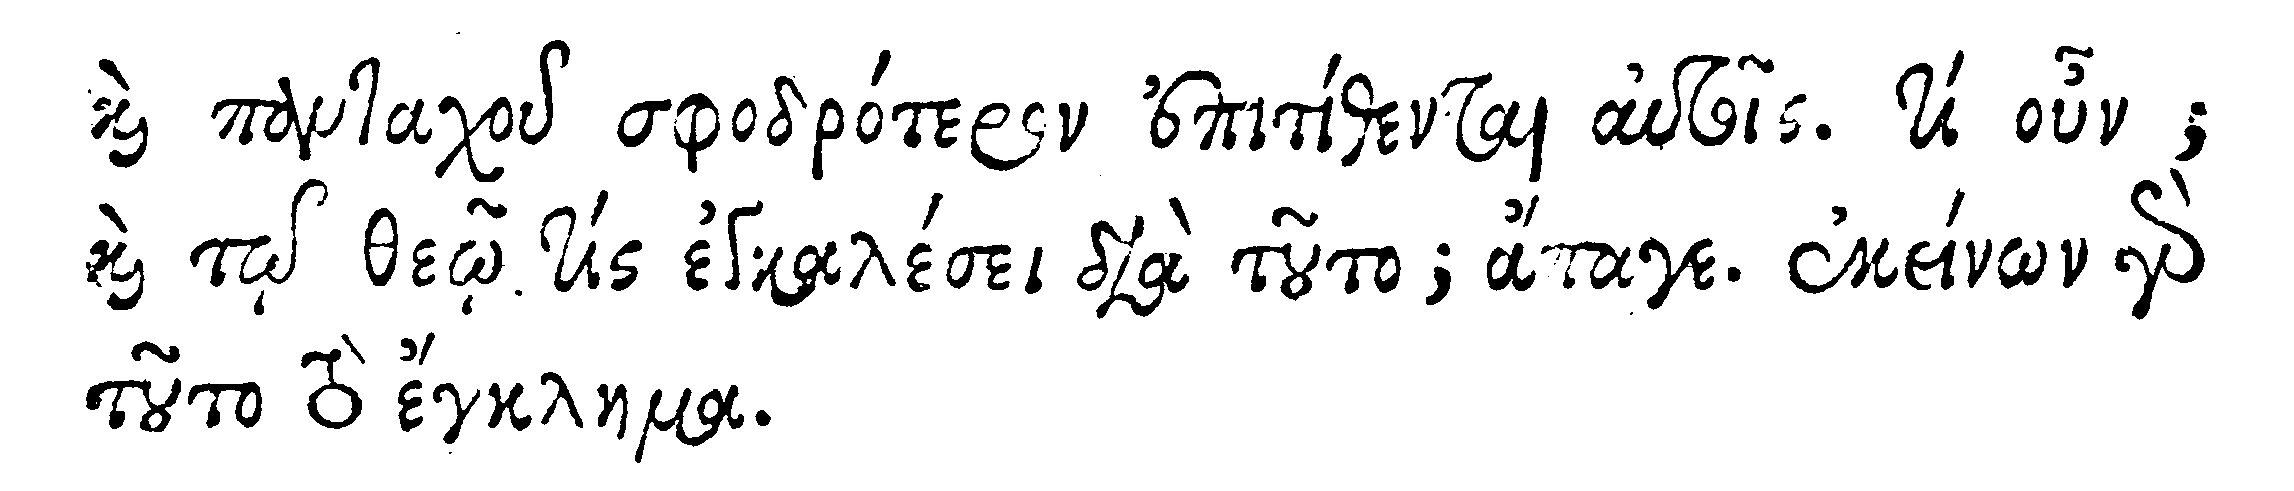 καὶ πανταχοῦ σφοδρότερον ἐπιτίθενται αὐτοῖς. τί οὖν ;
καὶ τῷ θεῷ τίς ἐγκαλέσει διὰ τοῦτο ; ἄπαγε. ἐκείνων γὰρ
τοῦτο τὸ ἔγκλημα.